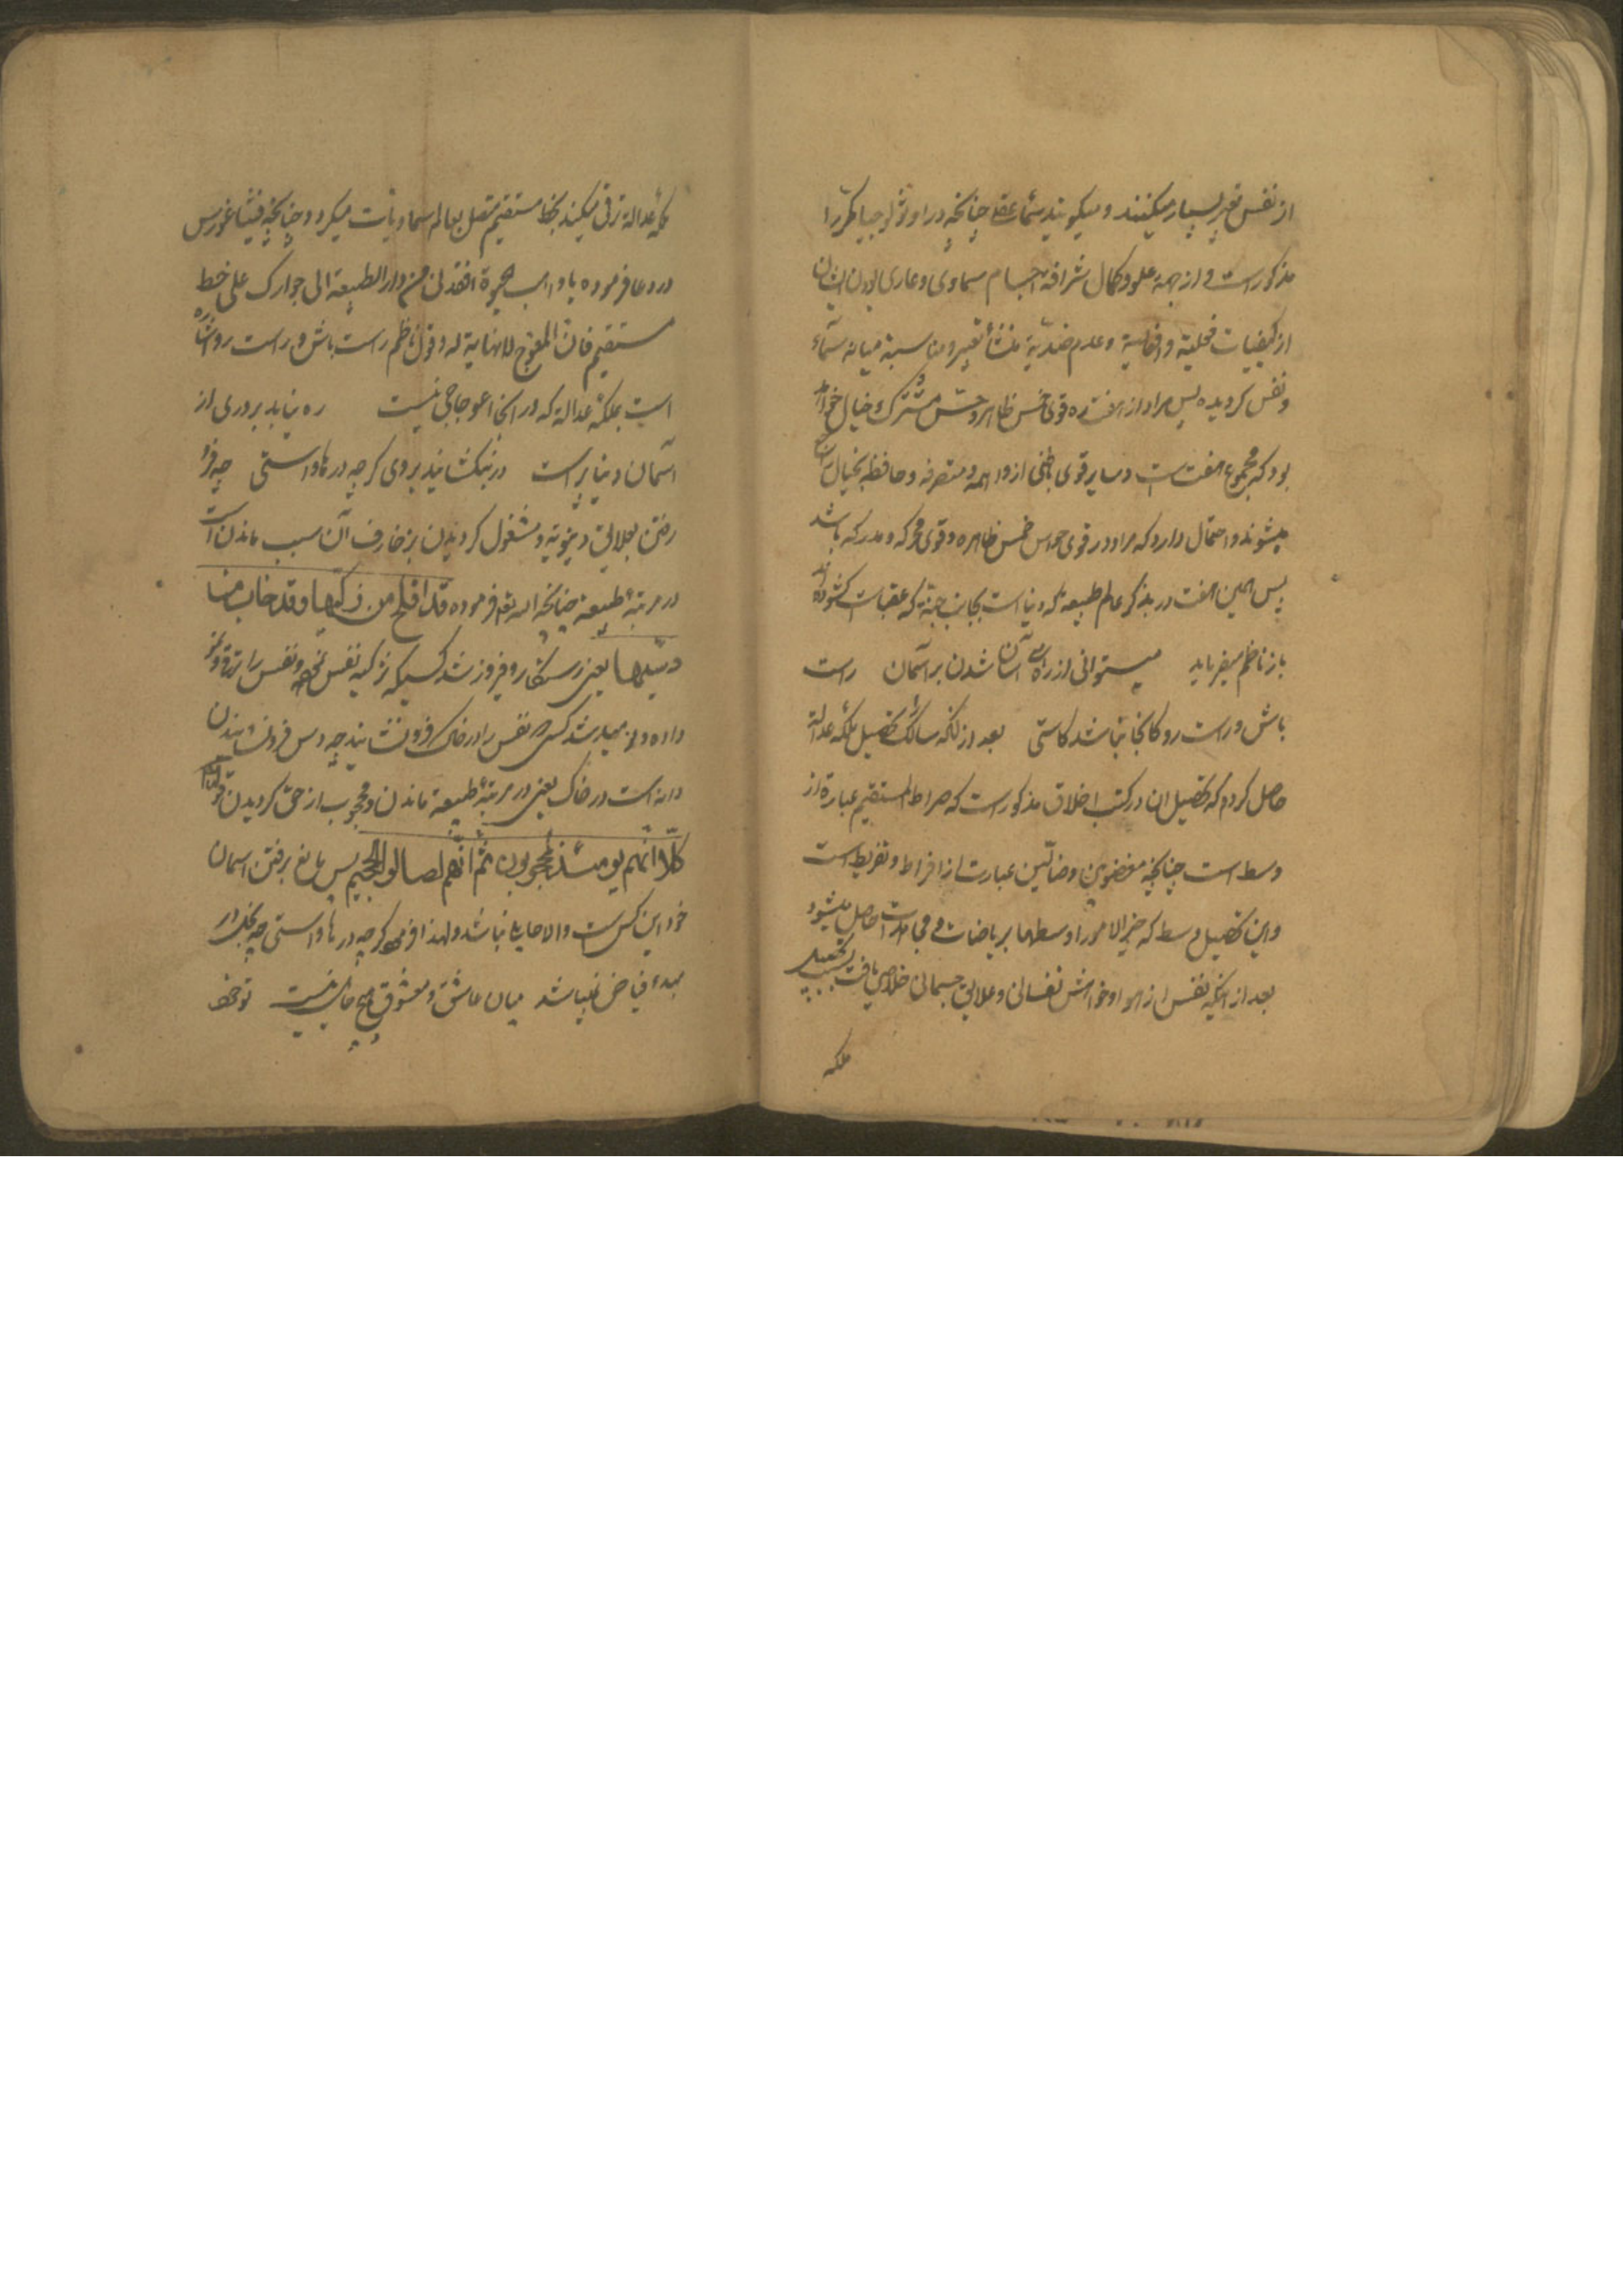 از نفس تعبیر بسیار میکنند و میگویند سماء عقل چنانچه در اوثولوجیا مکررا
مذکور است و از جهة علو و کمال شرافة اجسام سماوی و عاری بودن ایشان
از کیفیات فعلیة و انفعالیة و عدم ضدیة منشأ تعبیر و مناسبة میانه سماء
و نفس کردیده پس مراد از هفت ره قوی خمس ظاهر و حس مشترک و خیال خواهد
بود که مجموع هفت است و سایر قوی باطنی از واهمه و متصرفه و حافظه بخیال
میشوند و احتمال دارد که مراد در قوی حواس خمس ظاهره و قوی محرکه و مدرکه باشد
پس همین هفت در بذکر عالم طبیعة که دنیا است بجانب جنة که عقبات کشوده
باز ناظم میفرماید میتوانی از رهی آسان شدن بر آسمان راست
باش و راست رو کانجا نباشد کاستی بعد از آنکه سالک تحصیل ملکه عدالة
حاصل کردم که تفصیل ان در کتب اخلاق مذکور است که صراط المستقیم عبارة از
وسط است چنانچه مغضوبین و ضالّین عبارت از افراط و تفریط است
و این تحصیل وسط که خیر الامور اوسطها بریاضات و مجاهدات حاصل میشود
بعد از آنکه نفس از هوا و خواهش نفسانی و علایق جسمانی خلاصی یافت بسبب تحصیل
ملکه
ملکهٔ عدالة ترقی میکند بخط مستقیم متصل بعالم سماویات میکردد چنانچه فیثاغورس
در دعا فرموده یا واهب الحیوة انقذنی من دار الطبیعة الی جوارک علی خط
مستقیم فان المعوّج لا نهایة له و قول ناظم راست باش و راست رو اشاره
است بملکهٔ عدالة که در انجا اعوجاجی نیست ره نیابد بر دری از
آسمان دنیا پرست در نبکشایند بر وی کرچه درها واستی چه فرو
رفتن بعلایق دنیویة و مشغول کردیدن بزخارف آن سبب ماندن است
در مرتبهٔ طبیعة چنانچه الله تعه فرموده قد افلح من زکیها و قد خاب من
دسّیها یعنی رستکار و فیروز شد کسیکه تزکیه نفس نموده و نفس را
داده و نومید شد کسی که نفس را در خاک فرو نشانید چه دس فرو نشاندن
دانه است در خاک یعنی در مرتبهٔ طبیعة ماندن و محجوب از حق کردیدن قوله تعالی
کلّا انّهم یومئذ لمحجوبون ثم انّهم لصالوا الجحیم پس مانع برفتن اسمان
خود این کس است و الا حایلی نباشد و لهذا فرموده کرچه درها واستی چه بخل در
مبدء فیاض نمیباشد میان عاشق و معشوق هیچ حایل نیست تو خود